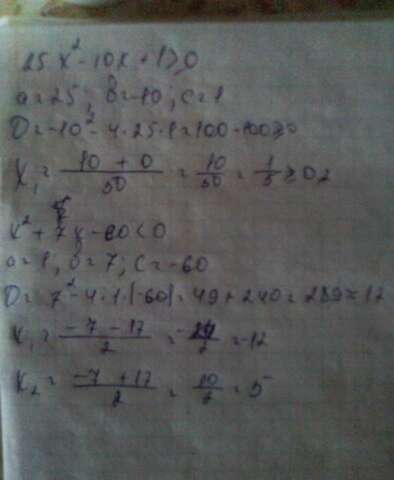 25x² - 10x + 1 ≥ 0
a = 25; b = -10; c = 1
D = -10² - 4·25·1 = 100 - 100 ≥ 0
X₁ = (10 + 0)/50 = 10/50 = 1/5 ≥ 0,2
x² + 7x - 60 < 0
a = 1, b = 7; c = -60
D = 7² - 4·1·(-60) = 49 + 240 = 289 = 17
X₁ = (-7 - 17)/2 = -24/2 = -12
X₂ = (-7 + 17)/2 = 10/2 = 5